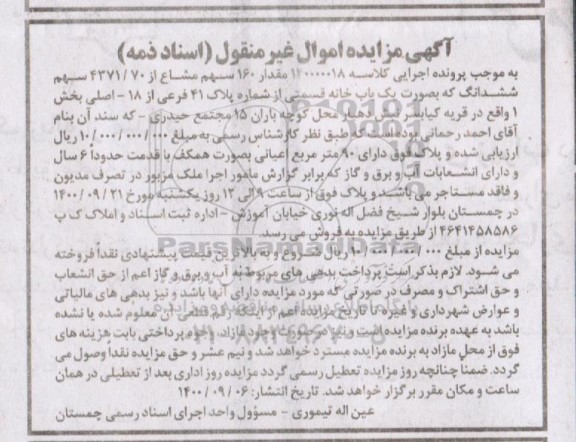 آگهی مزایده اموال غیر منقول (اسناد ذمه)
به موجب پرونده اجرایی کلاسه ۱۴۰۰۰۰۰۱۸ مقدار ۱۶۰ سهم مشاع از ۷۰ / ۴۳۷۱ سهم
ششدانگ که بصورت یک باب خانه قسمتی از شماره پلاک ۴۱ فرعی از ۱۸ - اصلی بخش
۱ واقع در قریه کیاسر نبش دهیار محل کوچه باران ۱۵ مجتمع حیدری - که سند آن بنام
آقای احمد رحمانی بوده است که طبق نظر کارشناس رسمی به مبلغ ۱۰/۰۰۰/۰۰۰/۰۰۰ ریال
ارزیابی شده و پلاک فوق دارای ۹۰ متر مربع اعیانی بصورت همکف با قدمت حدوداً ۶ سال
و دارای انشعابات آب و برق و گاز که برابر گزارش مامور اجرا ملک مزبور در تصرف مدیون
و فاقد مستاجر می باشد و پلاک فوق از ساعت ۹ الی ۱۲ روز یکشنبه مورخ ۲۱ / ۰۹ / ۱۴۰۰
در چمستان بلوار شیخ فضل اله نوری خیابان آموزش - اداره ثبت اسناد و املاک ک پ
۴۶۴۱۴۵۸۵۸۶ از طریق مزایده به فروش می رسد.
مزایده از مبلغ ۱۰/۰۰۰/۰۰۰/۰۰۰ ریال شروع و به بالاترین قیمت پیشنهادی نقداً فروخته
می شود. لازم بذکر است پرداخت بدهی های مربوط به آب و برق و گاز اعم از حق انشعاب
و حق اشتراک و مصرف در صورتی که مورد مزایده دارای آنها باشد و نیز بدهی های مالیاتی
و عوارض شهرداری و غیره تا تاریخ مزایده اعم از اینکه رقم قطعی آن معلوم شده یا نشده
باشد به عهده برنده مزایده است و نیز در صورت وجود مازاد، وجوه پرداختی بابت هزینه های
فوق از محل مازاد به برنده مزایده مسترد خواهد شد و نیم عشر و حق مزایده نقداً وصول می
گردد. ضمنا چنانچه روز مزایده تعطیل رسمی گردد مزایده روز اداری بعد از تعطیلی در همان
ساعت و مکان مقرر برگزار خواهد شد. تاریخ انتشار: ۰۶ / ۰۹ / ۱۴۰۰
عین اله تیموری - مسؤول واحد اجرای اسناد رسمی چمستان
ParsNamadData
۰۲۱-۸۸۳۴۹۶۷۰-۵